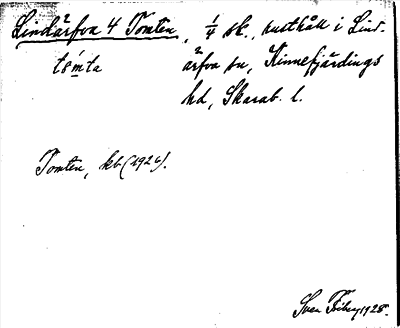 Lindärfva 4 Tomten, 1/4 sk., rusthåll i Lind-
tớmta ärfva sn, Kinnefjärdings
hd, Skarab. l.
Tomten, kb (1926).
Sven Friberg 1928.